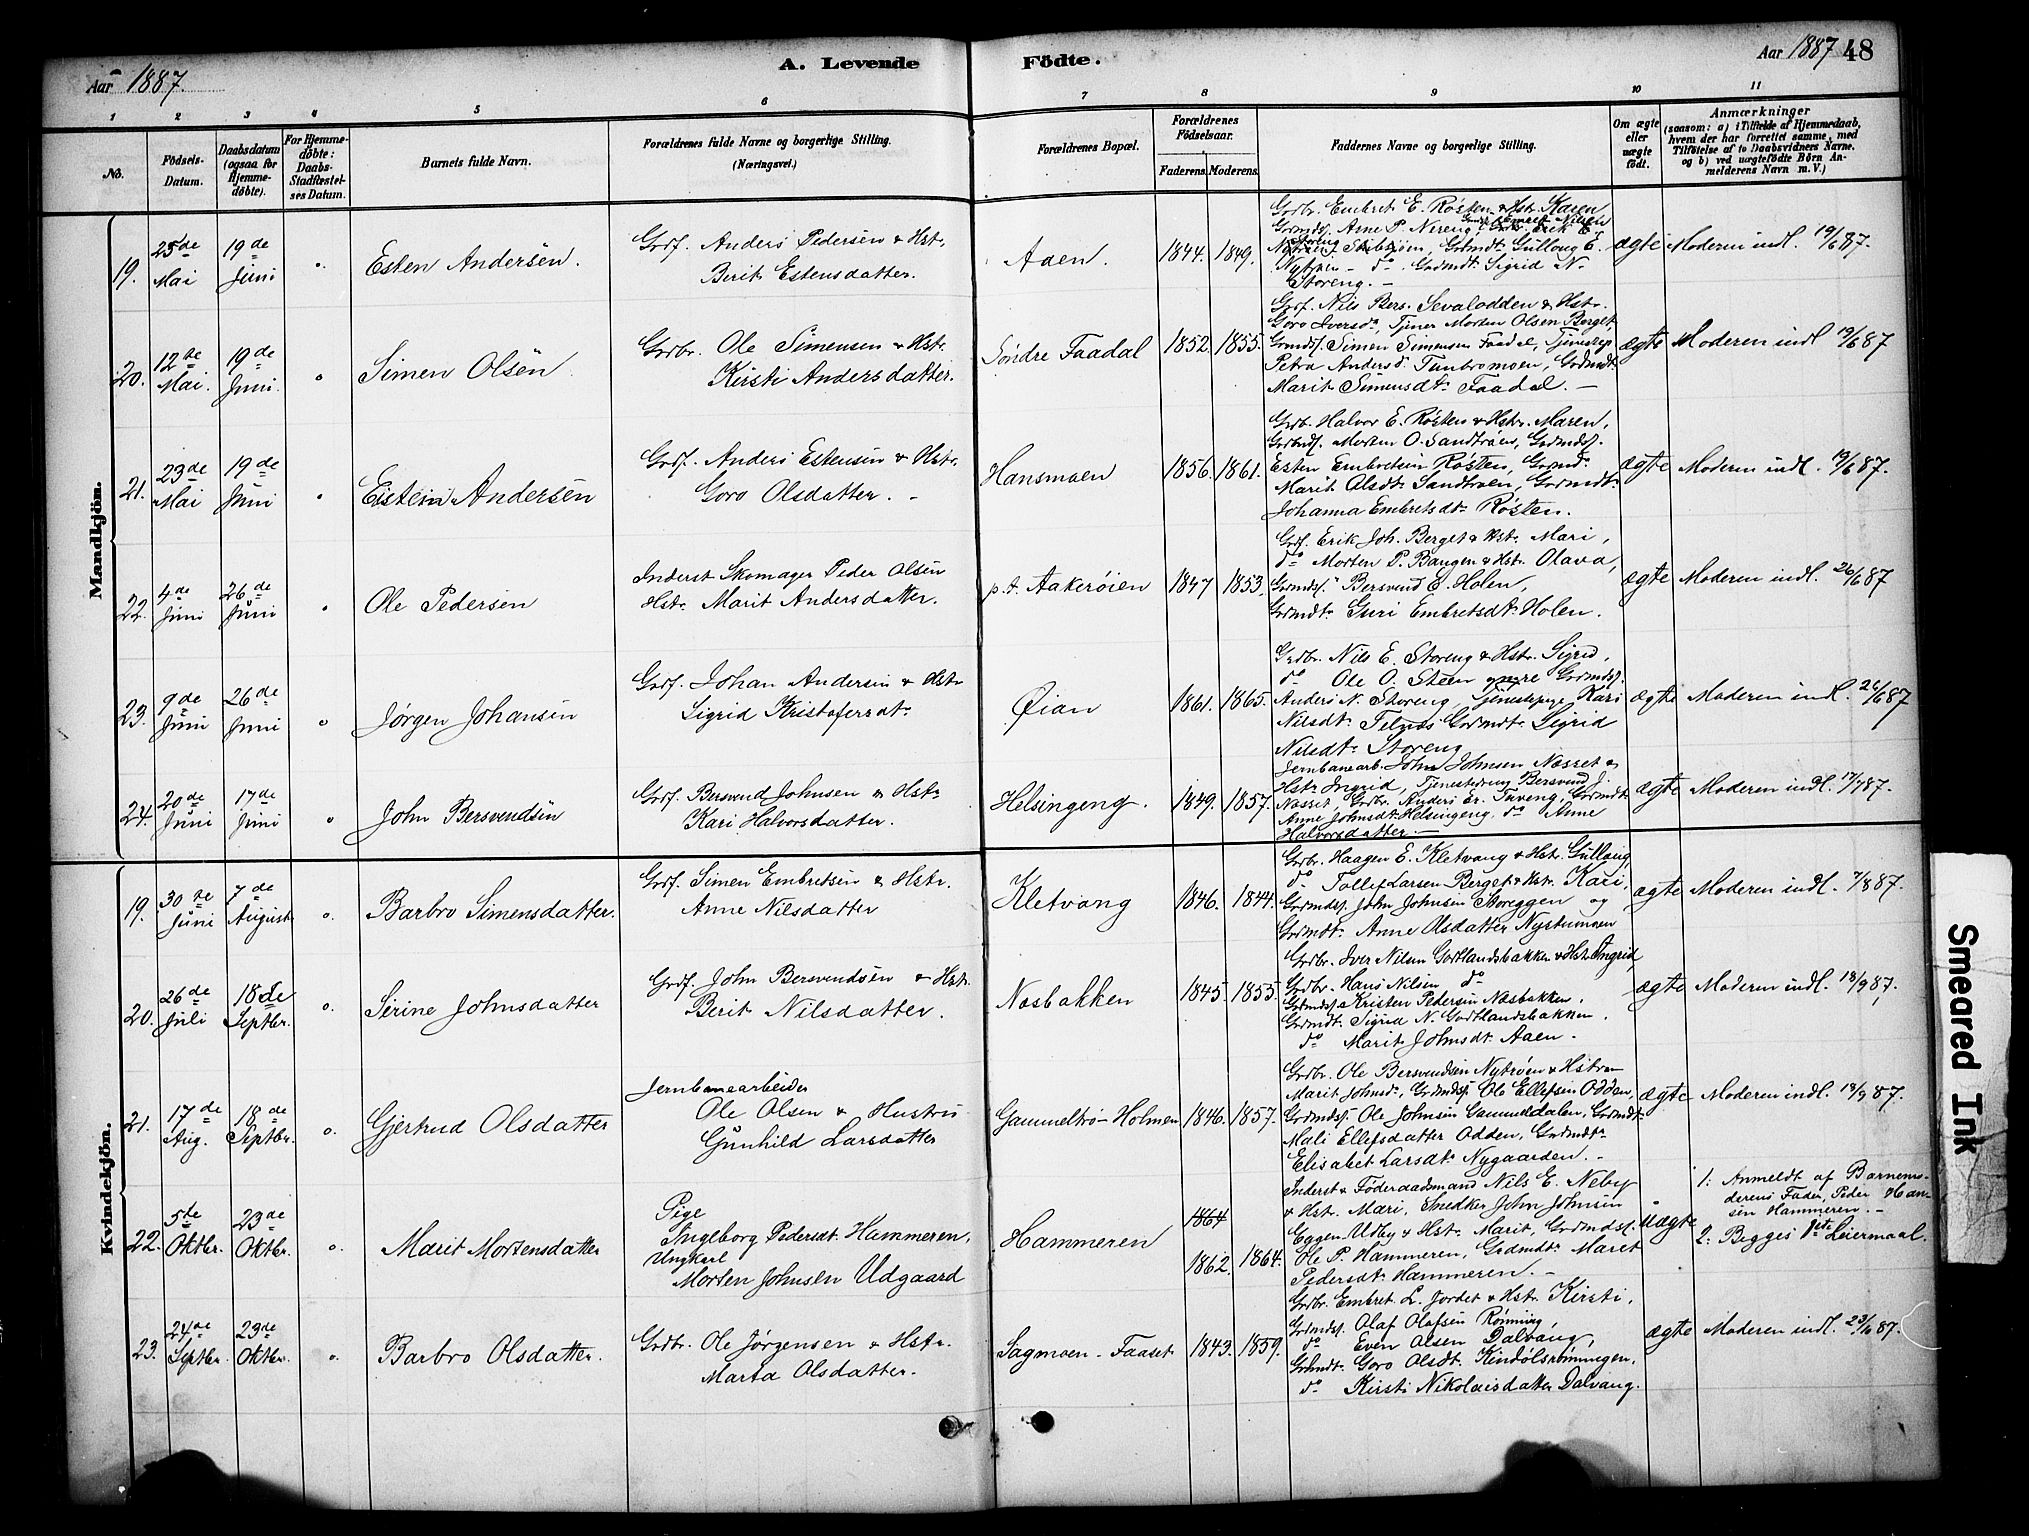 Aar 1887.
A. Levende
Födte.
Aar 1887
48
1 2 3 4 5 6 7 8 9 10 11
No.
Födsels-
Datum.
Daabsdatum
(ogsaa for
Hjemme-
döbte).
For Hjemme-
döbte:
Daabs-
Stadfæstel-
ses Datum.
Barnets fulde Navn.
Forældrenes fulde Navne og borgerlige Stilling.
(Næringsvei.)
Forældrenes Bopæl.
Forældrenes
Födselsaar.
Faderens. Moderens.
Faddernes Navne og borgerlige Stilling.
Om ægte
eller
uægte
födt.
Anmærkninger
(saasom: a) i Tilfælde af Hjemmedaab,
hvem der har forrettet samme, med
Tilföielse af to Daabsvidners Navne.
og b) ved uægtefödte Börn An-
melderens Navn m. V.)
Mandkjön.
19.
25de
Mai
19de
Juni
Esten Andersen.
Grdf. Anders Pedersen & Hstr.
Berit Estensdatter.
Aaen.
1844. 1849.
Grdbr. Embret E. Røsten & Hstr. Karen
Grdmds. Arne P. Nereng,
Grdmdt. Gulloug E.
Grdmdt. Sigrid N.
Storeng. -
ægte
Moderen indl. 19/6 87.
20.
12te
Mai.
19de
Juni.
Simen Olsen
Grdbr. Ole Simensen & Hstr.
Kirsti Andersdatter.
Søndre Faadal
1852. 1855.
Grdf. Nils Bers. Sevalodden & Hstr.
Goro Iversd., Tjener Morten Olsen Berget
Grdmds. Simen Simensen Faadal, Tjenestep.
Petra Andersd. Tunbromoen, Grdmdt.
Marit Simensdt. Faadal. -
ægte
Moderen indl 19/6 87
21.
23de
Mai
19de
Juni
Eistein Andersen
Grdf. Anders Estensen & Hstr.
Goro Olsdatter. -
Hansmoen
1856. 1861.
Grdb. Halvor E. Røsten & Hstr. Maren,
Grdmds. Morten O. Sandtrøen, Grdmds.
Esten Embretsen Røsten, Grdmd.
Marit Olsdt. Sandtrøen, Grdmdt.
Johanna Embretsdt. Røsten.
ægte
Moderen indl. 19/6 87.
22.
4de
Juni
26de
Juni
Ole Pedersen
Inderst Skomager Peder Olsen
Hstr. Marit Andersdatter.
p.t. Aakerøien
1847 1853.
Grdf. Erik Joh. Berget & Hstr. Mari,
do Morten P. Baugen & Hstr. Olava,
Grdmds. Bersvend E. Holen,
Grdmdt. Guri Embretsdt. Holen.
ægte
Moderen indl. 26/6 87
23.
9de
Juni
26de
Juni
Jørgen Johansen
Grdf. Johan Andersen & Hstr
Sigrid Kristofersdt.
Øian
1861. 1865.
Grdbr. Nils E. Storeng & Hstr. Sigrid,
do Ole O. Steen øvre Grdmds.
Anders N. Storeng, Tjenestepige Kari
Nilsdt. Telnes Grdmdt. Sigrid
Nilsdt. Storeng
ægte
Moderen indl. 26/6 87
24.
20de
Juni
17de
Juni
John Bersvendsen
Grdf. Bersvend Johnsen & Hstr
Kari Halvorsdatter.
Helsingeng.
1849. 1857.
Jernbanearb. John Johnsen Nasset &
Hstr. Ingrid, Tjenestedreng Bersvend J.
Nasset, Grdbr. Anders Er. Tuveng, Grdmdt.
Anne Johnsdt. Helsingeng, do Anne
Halvorsdatter. -
ægte
Moderen indl. 17/7 87.
Kvindekjön.
19.
30te
Juni
7de
August
Barbro Simensdatter.
Grdf. Simen Embretsen & Hstr.
Anne Nilsdatter
Kletvang
1846. 1844.
Grdbr. Haagen E. Kletvang & Hstr. Gulloug
do Tollef Larsen Berget & Hstr. Kari,
Grdmds. John Johnsen Storeggen og
Grdmdt. Anne Olsdatter Nystumoen
ægte
Moderen indl. 7/8 87.
20.
26de
Juli
18de
Septbr.
Sirine Johnsdatter
Grdf. John Bersvendsen & Hstr.
Berit Nilsdatter.
Næsbakken
1845. 1855.
Grdbr. Iver Nilsen Godtlandsbakken & Hstr. Ingrid,
Grdbr. Hans Nilsen do
Grdmds. Kristen Pedersen Næsbakken,
Grdmdt. Sigrid N. Godtlandsbakken.
do Marit Johnsdt. Aaen.
ægte
Moderen indl. 18/9 87.
21.
17de
Aug.
18de
Septbr.
Gjertrud Olsdatter
Jernbanearbeider
Ole Olsen & Hustru
Gunhild Larsdatter
Gammeltrø-Holmen
1846. 1857.
Grdbr. Ole Bersvendsen Nytrøen & Hstru
Marit Johnsd., Grdmds. Ole Ellefsen Odden,
Grdmds. Ole Johnsen Gammeldalen, Grdmdt.
Mali Ellefsdatter Odden, Grdmdtr
Elisabet Larsdt. Nygaarden. -
ægte
Moderen indl. 18/9 87.
22.
5te
Oktbr.
23de
Oktbr.
Marit Mortensdatter
Pige
Ingeborg Pedersdt. Hammeren,
Ungkarl
Morten Johnsen Udgaard
Hammeren
1864
1862. 1864.
Inderst & Föderaadsmand Nils E. Neby
& Hstr. Mari, Snedker John Johnsen
Eggen Udby & Hstr. Marit, Grdmds.
Ole P. Hammeren, Grdmdt. Maret
Pedersdt. Hammeren. -
uægte
1. Anmeldt af Barnemo-
derens Fader, Peder Han-
sen Hammeren. -
2. Begges 1ste Leiermaal.
23.
24de
Septbr.
23de
Oktbr.
Barbro Olsdatter.
Grdbr. Ole Jørgensen & Hstr.
Marta Olsdatter.
Sagmoen - Faaset
1843. 1859.
Grdbr. Embret L. Jordet & Hstr. Kirsti,
Grdmds. Olaf Olafsen Rønning,
do Even Olsen Dalvang,
Grdmdt. Goro Olsdt. Kindølsrønningen,
do Kirsti Nikolaisdatter Dalvang.
ægte
Moderen indl. 23/10 87.
Smeared Ink